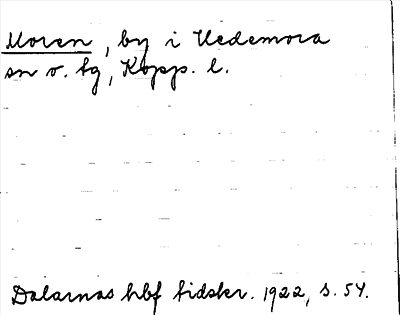 Moren, by i Hedemora
sn o. lg, Kopp. l.
Dalarnas hbf tidskr. 1922, s. 54.